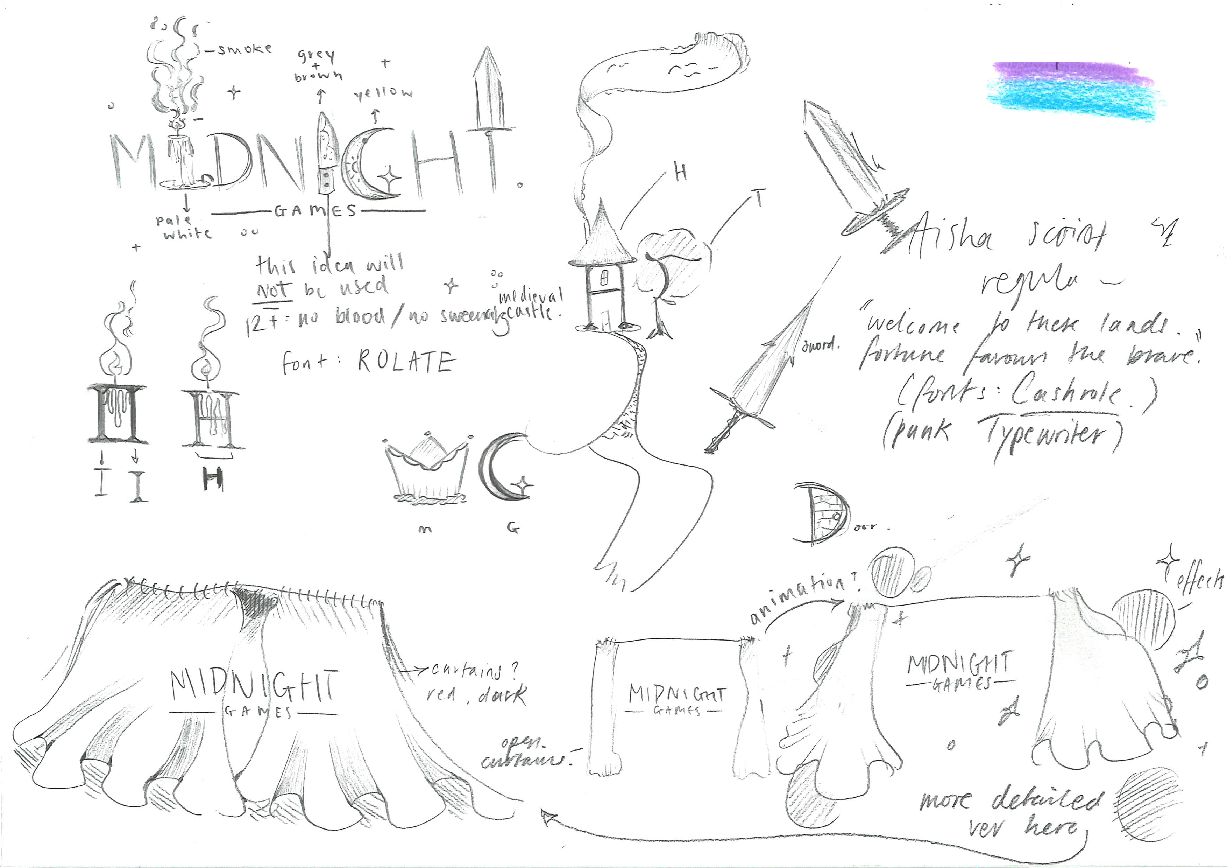 smoke
grey
+
brown
yellow
MIDNIGHT.
GAMES
pale
white
this idea will
NOT be used
12+: no blood / no swearing
font: ROLATE
medieval
castle.
H
T
sword.
Aisha script
regula
"welcome to these lands.
fortune favours the brave."
(fonts: Cashrole.)
(punk Typewriter)
I
I
H
m
G
Door.
MIDNIGHT
GAMES
curtains?
red, dark
open
curtains.
MIDNIGHT
GAMES
animation?
MIDNIGHT
GAMES
effects
more detailed
ver here